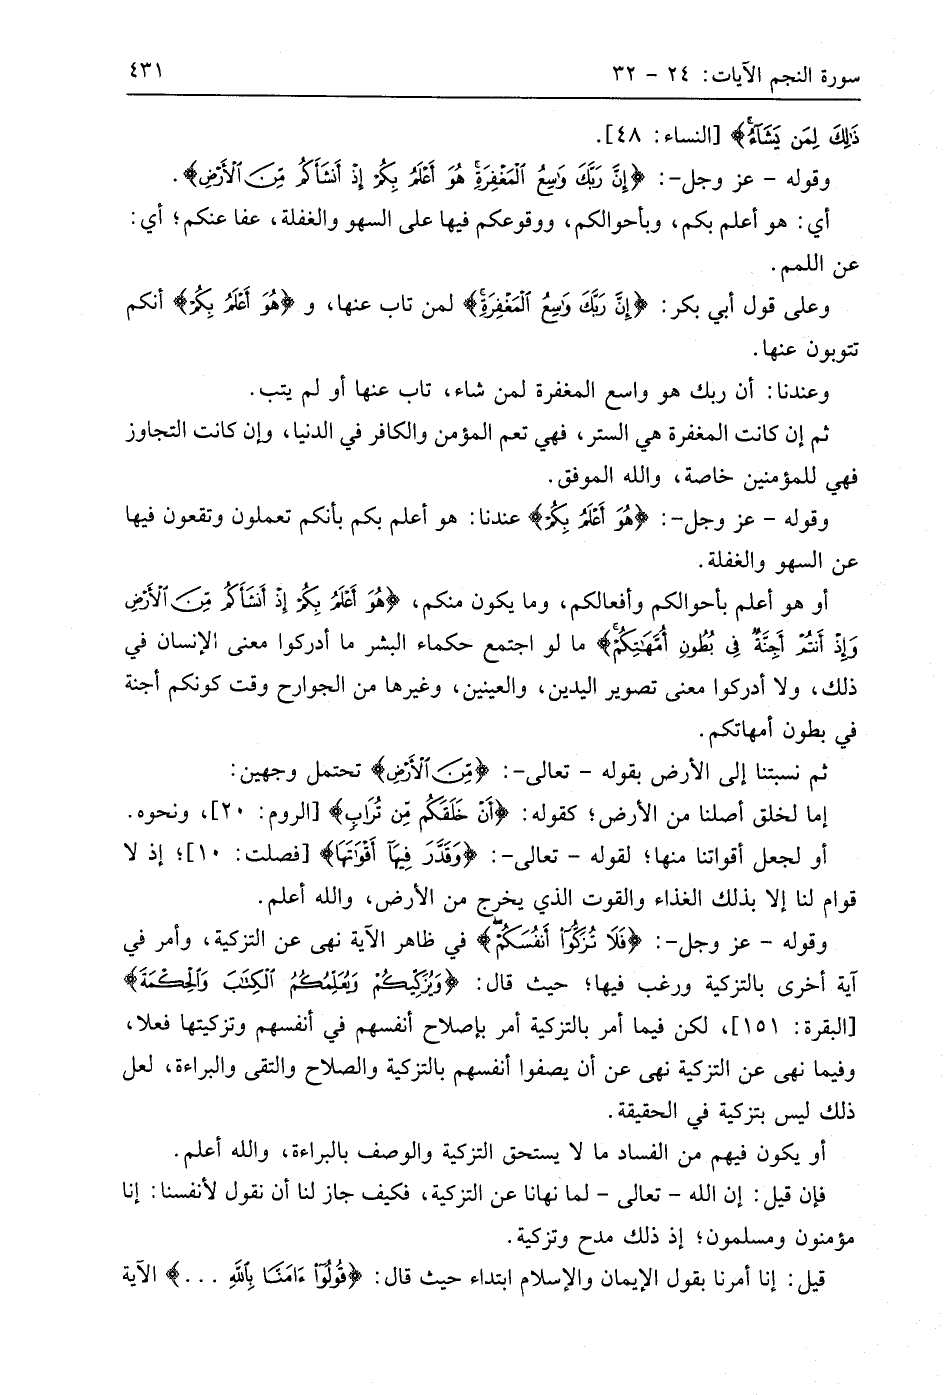 سورة النجم الآيات: ٢٤ - ٣٢ ٤٣١
ذَٰلِكَ لِمَن يَشَآءُۚ﴾ [النساء: ٤٨].
وقوله - عز وجل-: ﴿إِنَّ رَبَّكَ وَٰسِعُ ٱلْمَغْفِرَةِۚ هُوَ أَعْلَمُ بِكُمْ إِذْ أَنشَأَكُم مِّنَ ٱلْأَرْضِ﴾.
أي: هو أعلم بكم، وبأحوالكم، ووقوعكم فيها على السهو والغفلة، عفا عنكم؛ أي:
عن اللمم.
وعلى قول أبي بكر: ﴿إِنَّ رَبَّكَ وَٰسِعُ ٱلْمَغْفِرَةِۚ﴾ لمن تاب عنها، و ﴿هُوَ أَعْلَمُ بِكُمْ﴾ أنكم
تتوبون عنها.
وعندنا: أن ربك هو واسع المغفرة لمن شاء، تاب عنها أو لم يتب.
ثم إن كانت المغفرة هي الستر، فهي تعم المؤمن والكافر في الدنيا، وإن كانت التجاوز
فهي للمؤمنين خاصة، والله الموفق.
وقوله - عز وجل-: ﴿هُوَ أَعْلَمُ بِكُمْ﴾ عندنا: هو أعلم بكم بأنكم تعملون وتقعون فيها
عن السهو والغفلة.
أو هو أعلم بأحوالكم وأفعالكم، وما يكون منكم، ﴿هُوَ أَعْلَمُ بِكُمْ إِذْ أَنشَأَكُم مِّنَ ٱلْأَرْضِ
وَإِذْ أَنتُمْ أَجِنَّةٌ فِى بُطُونِ أُمَّهَٰتِكُمْۚ﴾ ما لو اجتمع حكماء البشر ما أدركوا معنى الإنسان في
ذلك، ولا أدركوا معنى تصوير اليدين، والعينين، وغيرها من الجوارح وقت كونكم أجنة
في بطون أمهاتكم.
ثم نسبتنا إلى الأرض بقوله - تعالى-: ﴿مِّنَ ٱلْأَرْضِ﴾ تحتمل وجهين:
إما لخلق أصلنا من الأرض؛ كقوله: ﴿أَنْ خَلَقَكُم مِّن تُرَابٍ﴾ [الروم: ٢٠]، ونحوه.
أو لجعل أقواتنا منها؛ لقوله - تعالى-: ﴿وَقَدَّرَ فِيهَآ أَقْوَٰتَهَا﴾ [فصلت: ١٠]؛ إذ لا
قوام لنا إلا بذلك الغذاء والقوت الذي يخرج من الأرض، والله أعلم.
وقوله - عز وجل-: ﴿فَلَا تُزَكُّوٓا۟ أَنفُسَكُمْۖ﴾ في ظاهر الآية نهى عن التزكية، وأمر في
آية أخرى بالتزكية ورغب فيها؛ حيث قال: ﴿وَيُزَكِّيكُمْ وَيُعَلِّمُكُمُ ٱلْكِتَٰبَ وَٱلْحِكْمَةَ﴾
[البقرة: ١٥١]، لكن فيما أمر بالتزكية أمر بإصلاح أنفسهم في أنفسهم وتزكيتها فعلا،
وفيما نهى عن التزكية نهى عن أن يصفوا أنفسهم بالتزكية والصلاح والتقى والبراءة، لعل
ذلك ليس بتزكية في الحقيقة.
أو يكون فيهم من الفساد ما لا يستحق التزكية والوصف بالبراءة، والله أعلم.
فإن قيل: إن الله - تعالى - لما نهانا عن التزكية، فكيف جاز لنا أن نقول لأنفسنا: إنا
مؤمنون ومسلمون؛ إذ ذلك مدح وتزكية.
قيل: إنا أمرنا بقول الإيمان والإسلام ابتداء حيث قال: ﴿قُولُوٓا۟ ءَامَنَّا بِٱللَّهِ ...﴾ الآية